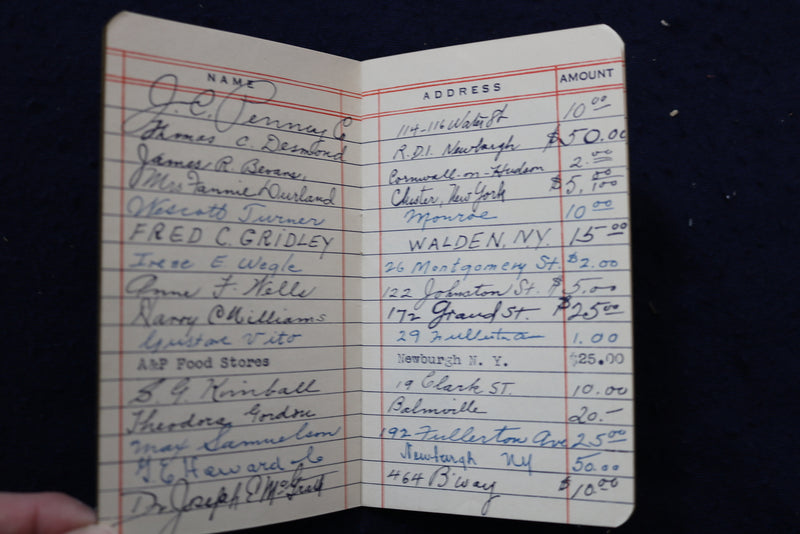 NAME ADDRESS AMOUNT
J. C. Penney Co 114-116 Water St. 10.00
Thomas C. Desmond R.D.1. Newburgh $50.00
James R. Bevans, Cornwall-on-Hudson 2.00
Mrs Fannie Durland Chester, New York $5.00
Wescott Turner Monroe 10.00
FRED C. GRIDLEY WALDEN, N.Y. 15.00
Irene E. Wegle 26 Montgomery St. $2.00
Anne F. Wells 122 Johnston St. $5.00
Harry C Williams 172 Grand St. $25.00
Gustav Vito 29 Fullerton 1.00
A&P Food Stores Newburgh N. Y. $25.00
S. G. Kimball 19 Clark ST. 10.00
Theodora Gordon Balmville 20.-
Max Samuelson 192 Fullerton Ave 25.00
G. E. Howard Co Newburgh NY 50.00
Dr Joseph E McGrath 464 B'way $10.00